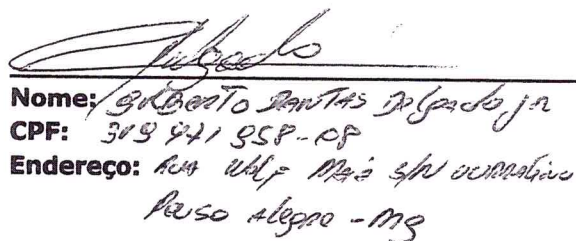 Delgado
Nome: Gilberto Dantas Delgado jr
CPF: 319 471 958-08
Endereço: Rua Wolf Maia s/N
Pouso Alegre - MG